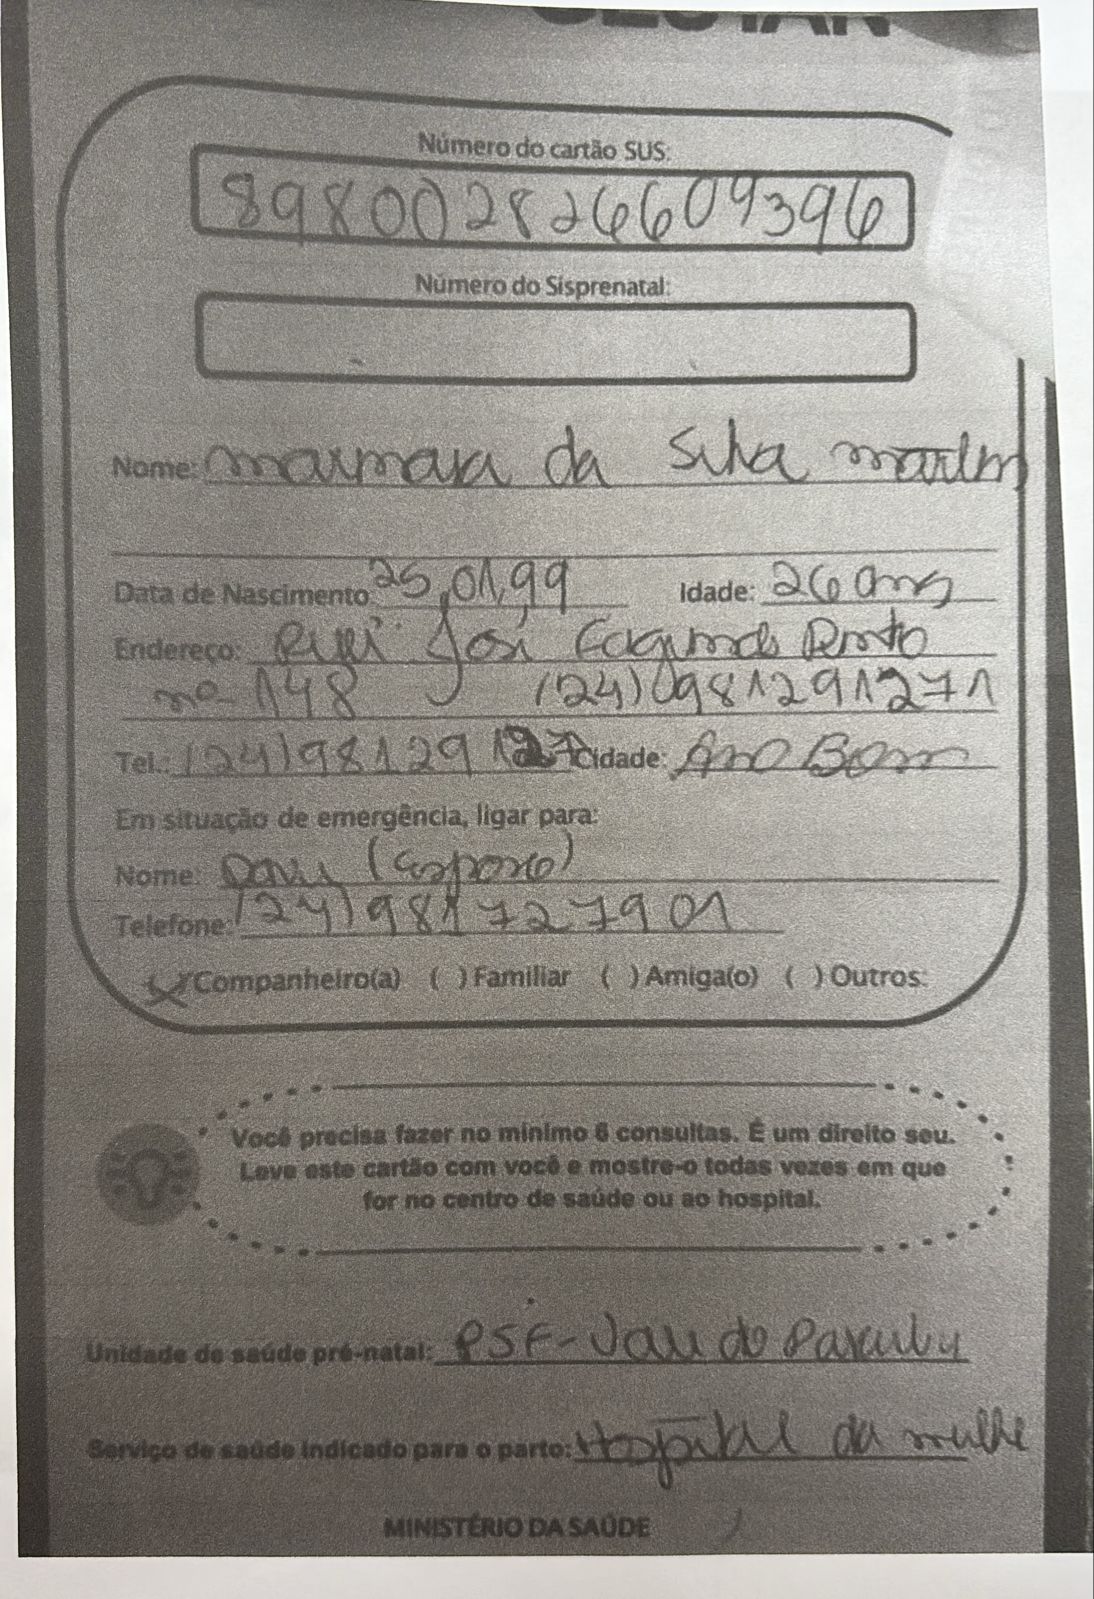 Número do cartão SUS:
898002826609396
Número do Sisprenatal:
Nome: da Silva
Data de Nascimento: 25,01,99 Idade: 26 anos
Endereço: José Fagundes
nº 148 (24) 981291271
Tel.: (24) 98129 Cidade: Ano Bom
Em situação de emergência, ligar para:
Nome: Davy (esposo)
Telefone: (24) 981727901
(X) Companheiro(a) ( ) Familiar ( ) Amiga(o) ( ) Outros:
Você precisa fazer no mínimo 6 consultas. É um direito seu.
Leve este cartão com você e mostre-o todas vezes em que
for no centro de saúde ou ao hospital.
Unidade de saúde pré-natal: PSF- do
Serviço de saúde indicado para o parto: Hospital da mulhe
MINISTÉRIO DA SAÚDE